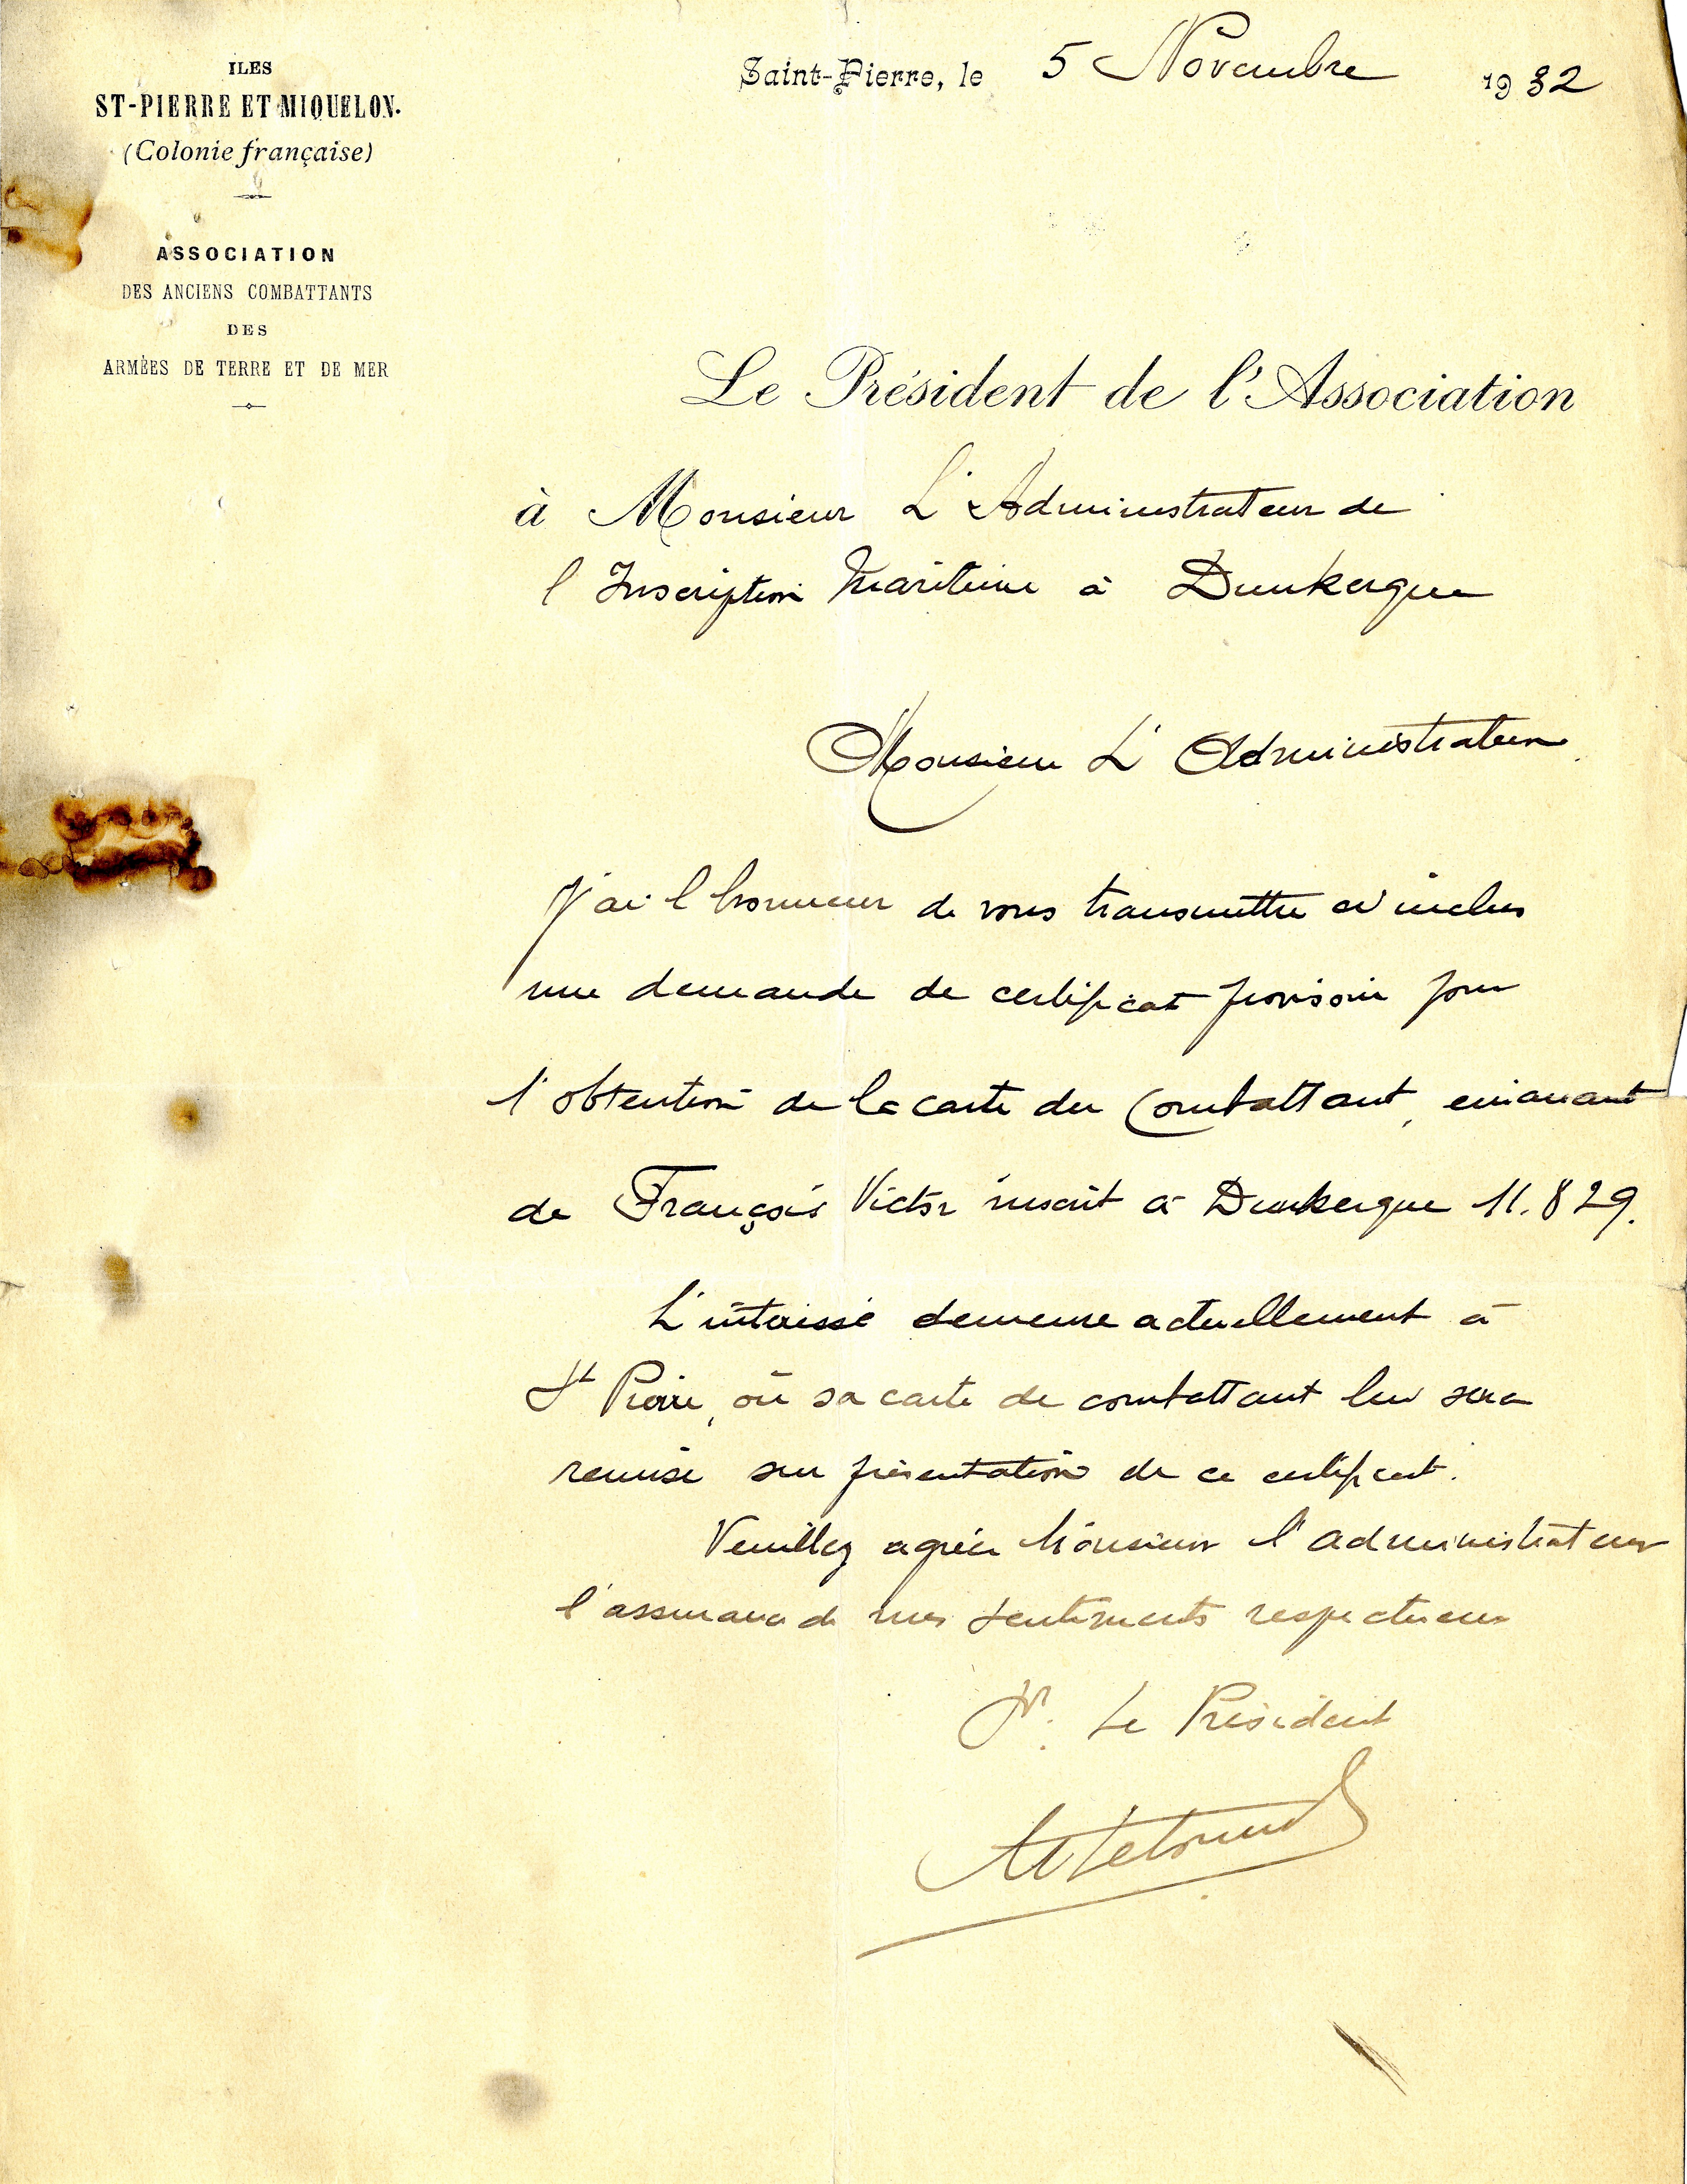 ILES
ST-PIERRE ET MIQUELON.
(Colonie française)
ASSOCIATION
DES ANCIENS COMBATTANTS
DES
ARMÈES DE TERRE ET DE MER
Saint-Pierre, le 5 Novembre 1932
Le Président de l'Association
à Monsieur L'Administrateur de
l Inscription Maritime à Dunkerque
Monsieur L'Administrateur
J'ai l honneur de vous transmettre ci inclus
une demande de certificat provisoire pour
l'obtention de la carte du Combattant, émanant
de François Victor inscrit à Dunkerque 11.829.
L'intéressé demeure actuellement à
St Pierre, où sa carte de combattant lui sera
remise sur présentation de ce certificat.
Veuillez agréer Monsieur l'administrateur
l'assurance de mes sentiments respectueux
Pr. Le Président